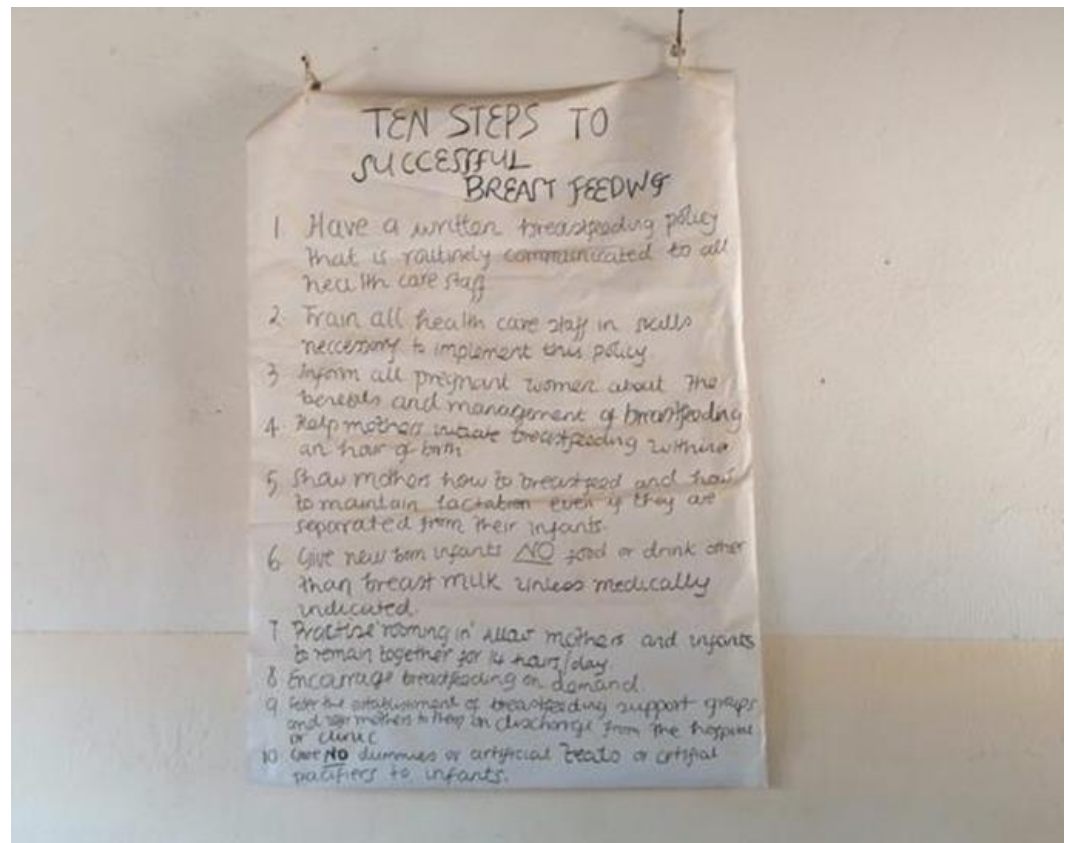 TEN STEPS TO
SUCCESSFUL
BREAST FEEDING
1 Have a written breastfeeding policy
that is routinely communicated to all
health care staff
2 Train all health care staff in skills
neccessary to implement this policy
3 Inform all pregnant women about the
benefits and management of breastfeeding
4. Help mothers initiate breastfeeding within
an hour of birth
5 Show mothers how to breastfeed and how
to maintain lactation even if they are
separated from their infants.
6 Give new born infants NO food or drink other
than breast milk unless medically
indicated.
7 Practise 'rooming in' allow mothers and infants
to remain together for hours/day.
8 Encourage breastfeeding on demand.
9 the establishment of breastfeeding support groups
and refer mothers to them on discharge from the hospital
or clinic
10 Give NO dummies or artificial teats or
pacifiers to infants.